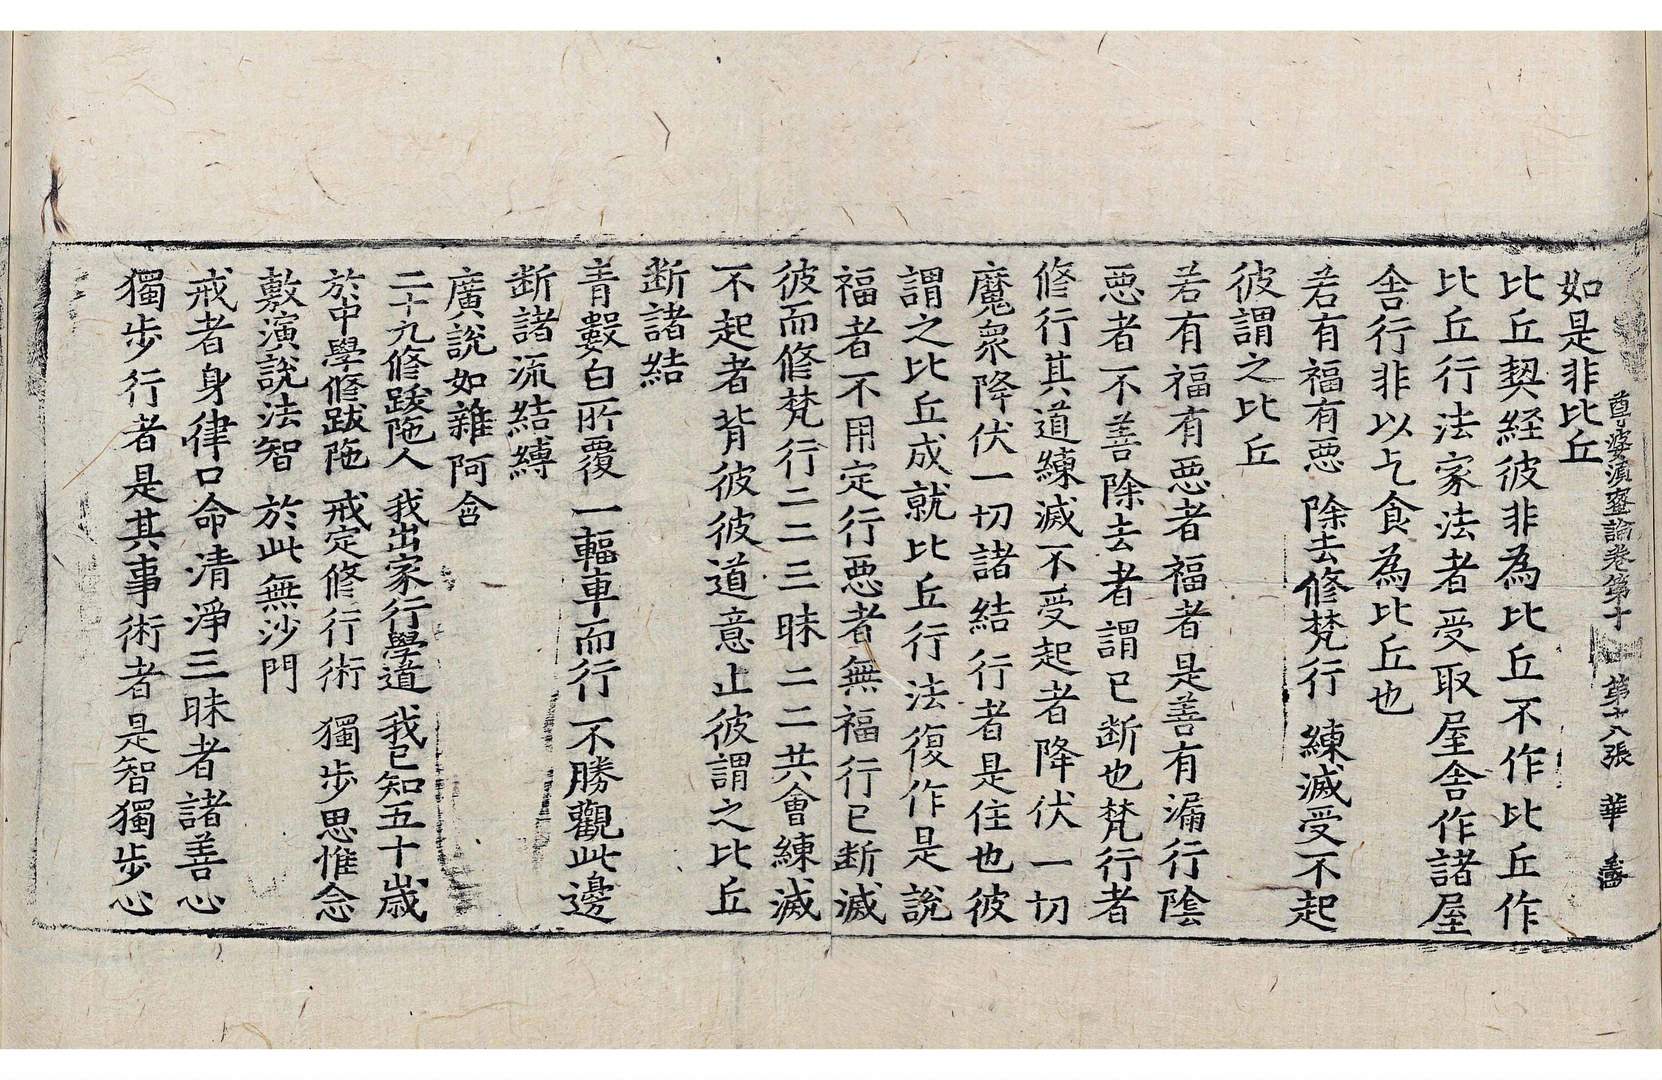 尊婆湏蜜論卷第十 第十八張 華
如是非比丘
比丘契経彼非為比丘不作比丘作
比丘行法家法者受取屋舎作諸屋
舎行非以乞食為比丘也
若有福有悪 除去修梵行 練滅受不起
彼謂之比丘
若有福有悪者福者是善有漏行陰
悪者不善除去者謂已断也梵行者
修行其道練滅不受起者降伏一切
魔衆降伏一切諸結行者是住也彼
謂之比丘成就比丘行法復作是説
福者不用定行悪者無福行已断滅
彼而修梵行二二三昧二二共會練滅
不起者背彼彼道意止彼謂之比丘
断諸結
青毄白所覆 一輻車而行 不勝觀此邊
断諸流結縛
廣説如雜阿含
二十九修跋陁人 我出家行學道 我已知五十歲
於中學修跋陁 戒定修行術 獨歩思惟念
敷演説法智 於此無沙門
戒者身律口命清淨三昧者諸善心
獨歩行者是其事術者是智獨歩心